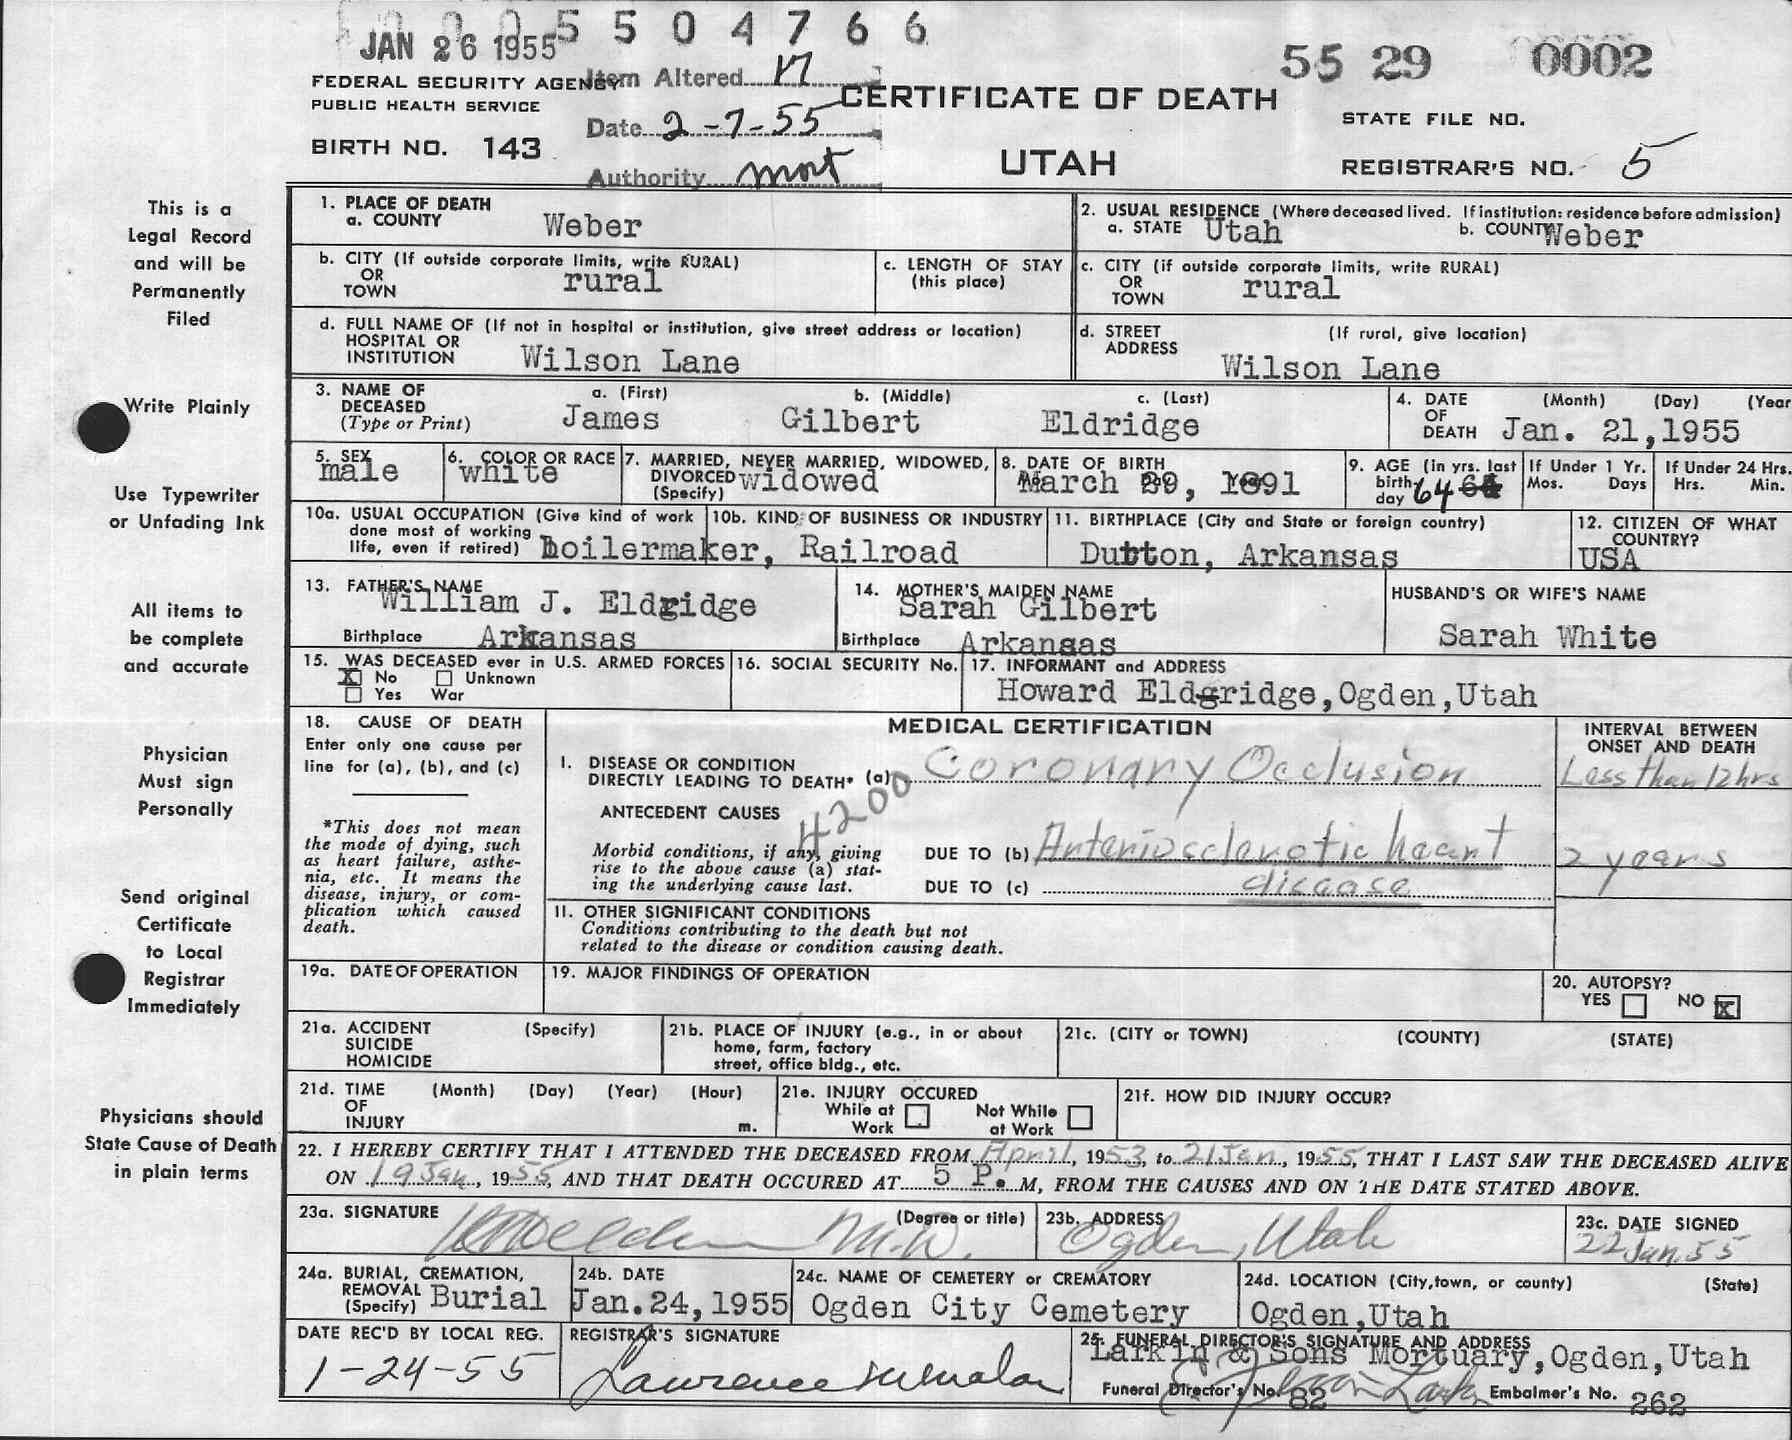 JAN 26 1955
5 5 0 4 7 6 6
55 29 0002
FEDERAL SECURITY AGENCY
PUBLIC HEALTH SERVICE
BIRTH NO. 143
Item Altered 17
Date 2-7-55
Authority mort
CERTIFICATE OF DEATH
UTAH
STATE FILE NO.
REGISTRAR'S NO. 5
This is a
Legal Record
and will be
Permanently
Filed
Write Plainly
Use Typewriter
or Unfading Ink
All items to
be complete
and accurate
Physician
Must sign
Personally
Send original
Certificate
to Local
Registrar
Immediately
Physicians should
State Cause of Death
in plain terms
1. PLACE OF DEATH
a. COUNTY Weber
2. USUAL RESIDENCE (Where deceased lived. If institution: residence before admission)
a. STATE Utah b. COUNTY Weber
b. CITY (If outside corporate limits, write RURAL)
OR
TOWN rural
c. LENGTH OF STAY
(this place)
c. CITY (if outside corporate limits, write RURAL)
OR
TOWN rural
d. FULL NAME OF (If not in hospital or institution, give street address or location)
HOSPITAL OR
INSTITUTION Wilson Lane
d. STREET (If rural, give location)
ADDRESS
Wilson Lane
3. NAME OF a. (First) b. (Middle) c. (Last)
DECEASED
(Type or Print) James Gilbert Eldridge
4. DATE (Month) (Day) (Year
OF
DEATH Jan. 21,1955
5. SEX
male
6. COLOR OR RACE
white
7. MARRIED, NEVER MARRIED, WIDOWED,
DIVORCED widowed
(Specify)
8. DATE OF BIRTH
March 29, 1891
9. AGE (in yrs. last
birth-
day 64
If Under 1 Yr.
Mos. Days
If Under 24 Hrs.
Hrs. Min.
10a. USUAL OCCUPATION (Give kind of work
done most of working
life, even if retired) boilermaker,
10b. KIND OF BUSINESS OR INDUSTRY
Railroad
11. BIRTHPLACE (City and State or foreign country)
Dutton, Arkansas
12. CITIZEN OF WHAT
COUNTRY?
USA
13. FATHER'S NAME
William J. Eldridge
Birthplace Arkansas
14. MOTHER'S MAIDEN NAME
Sarah Gilbert
Birthplace Arkansas
HUSBAND'S OR WIFE'S NAME
Sarah White
15. WAS DECEASED ever in U.S. ARMED FORCES
X No Unknown
Yes War
16. SOCIAL SECURITY No.
17. INFORMANT and ADDRESS
Howard Eldgridge,Ogden,Utah
18. CAUSE OF DEATH
Enter only one cause per
line for (a), (b), and (c)
*This does not mean
the mode of dying, such
as heart failure, asthe-
nia, etc. It means the
disease, injury, or com-
plication which caused
death.
MEDICAL CERTIFICATION
I. DISEASE OR CONDITION
DIRECTLY LEADING TO DEATH* (a) Coronary Occlusion
ANTECEDENT CAUSES
4200
Morbid conditions, if any, giving
rise to the above cause (a) stat-
ing the underlying cause last.
DUE TO (b) Arteriosclerotic heart
DUE TO (c) disease
INTERVAL BETWEEN
ONSET AND DEATH
Less than 12 hrs
2 years
II. OTHER SIGNIFICANT CONDITIONS
Conditions contributing to the death but not
related to the disease or condition causing death.
19a. DATE OF OPERATION
19. MAJOR FINDINGS OF OPERATION
20. AUTOPSY?
YES NO X
21a. ACCIDENT (Specify)
SUICIDE
HOMICIDE
21b. PLACE OF INJURY (e.g., in or about
home, farm, factory
street, office bldg., etc.
21c. (CITY or TOWN) (COUNTY) (STATE)
21d. TIME (Month) (Day) (Year) (Hour)
OF
INJURY m.
21e. INJURY OCCURED
While at Work Not While at Work
21f. HOW DID INJURY OCCUR?
22. I HEREBY CERTIFY THAT I ATTENDED THE DECEASED FROM April, 1953, to 21 Jan, 1955, THAT I LAST SAW THE DECEASED ALIVE
ON 19 Jan, 1955, AND THAT DEATH OCCURED AT 5 P. M, FROM THE CAUSES AND ON THE DATE STATED ABOVE.
23a. SIGNATURE (Degree or title)
M.D.
23b. ADDRESS
Ogden, Utah
23c. DATE SIGNED
22 Jan. 55
24a. BURIAL, CREMATION,
REMOVAL
(Specify) Burial
24b. DATE
Jan.24,1955
24c. NAME OF CEMETERY or CREMATORY
Ogden City Cemetery
24d. LOCATION (City,town, or county) (State)
Ogden,Utah
DATE REC'D BY LOCAL REG.
1-24-55
REGISTRAR'S SIGNATURE
Lawrence
25. FUNERAL DIRECTOR'S SIGNATURE AND ADDRESS
Larkin & Sons Mortuary,Ogden,Utah
Funeral Director's No. 82 Embalmer's No. 262